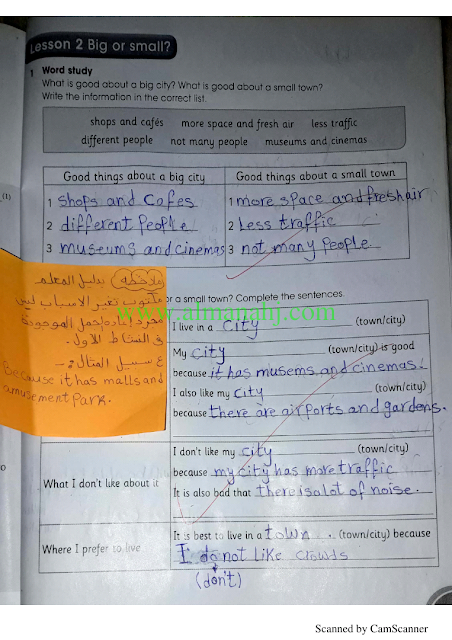 Lesson 2 Big or small?
1 Word study
What is good about a big city? What is good about a small town?
Write the information in the correct list.
shops and cafés more space and fresh air less traffic
different people not many people museums and cinemas
(1)
Good things about a big city Good things about a small town
1 shops and cafes 1 more space and fresh air
2 different people 2 Less traffic
3 museums and cinemas 3 not many people
ملاحظة بدليل المعلم
مكتوب تغير الاسباب ليس
مجرد إعادة لجمل الموجودة
في النشاط الأول.
ع سبيل المثال :-
Because it has malls and
amusement Park.
or a small town? Complete the sentences.
www.almanahj.com
I live in a city (town/city)
My city (town/city) is good
because it has musems and cinemas.
I also like my city (town/city)
because there are airports and gardens.
What I don't like about it
I don't like my city (town/city)
because my city has more traffic
It is also bad that there is a lot of noise.
Where I prefer to live
It is best to live in a town. (town/city) because
I do not like crowds
(don't)
Scanned by CamScanner